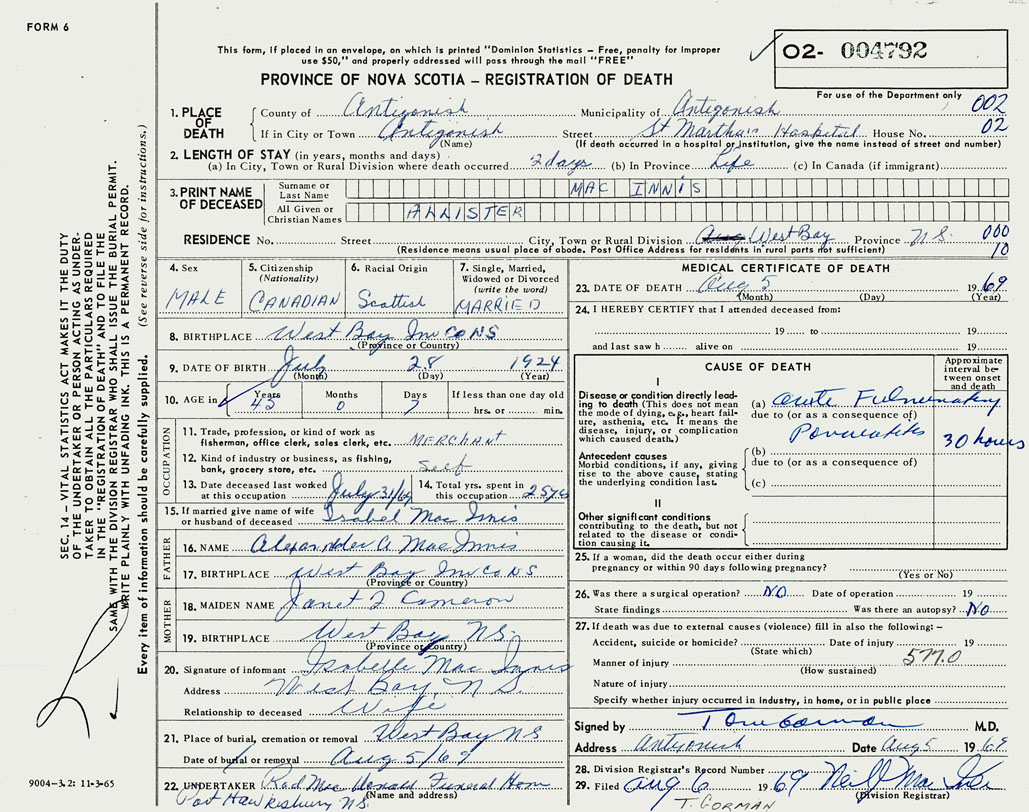 FORM 6
This form, if placed in an envelope, on which is printed "Dominion Statistics – Free, penalty for improper
use $50," and properly addressed will pass through the mail "FREE"
PROVINCE OF NOVA SCOTIA – REGISTRATION OF DEATH
O2- 004792
For use of the Department only
1. PLACE OF DEATH
County of Antigonish Municipality of Antigonish 002
If in City or Town Antigonish Street St Martha's Hospital House No. 02
(Name) (If death occurred in a hospital or institution, give the name instead of street and number)
2. LENGTH OF STAY (in years, months and days)
(a) In City, Town or Rural Division where death occurred 2 days (b) In Province Life (c) In Canada (if immigrant)
3. PRINT NAME OF DECEASED
Surname or Last Name MAC INNIS
All Given or Christian Names ALLISTER
RESIDENCE No. Street City, Town or Rural Division West Bay Province N.S. 000
(Residence means usual place of abode. Post Office Address for residents in rural parts not sufficient) 10
4. Sex MALE
5. Citizenship (Nationality) CANADIAN
6. Racial Origin Scottish
7. Single, Married, Widowed or Divorced (write the word) MARRIED
8. BIRTHPLACE West Bay Inv Co NS
(Province or Country)
9. DATE OF BIRTH July 28 1924
(Month) (Day) (Year)
10. AGE in Years 45 Months 0 Days 7 If less than one day old
hrs. or min.
OCCUPATION
11. Trade, profession, or kind of work as
fisherman, office clerk, sales clerk, etc. MERCHANT
12. Kind of industry or business, as fishing,
bank, grocery store, etc. Self
13. Date deceased last worked at this occupation July 31/69
14. Total yrs. spent in this occupation 25 yrs
15. If married give name of wife
or husband of deceased Isabel Mac Innis
FATHER
16. NAME Alexander A Mac Innis
17. BIRTHPLACE West Bay Inv Co NS
(Province or Country)
MOTHER
18. MAIDEN NAME Janet Cameron
19. BIRTHPLACE West Bay NS.
(Province or Country)
20. Signature of informant Isabelle Mac Innis
Address West Bay, N.S.
Relationship to deceased Wife
21. Place of burial, cremation or removal West Bay NS
Date of burial or removal Aug 5/69
22. UNDERTAKER Rod Mac Donald Funeral Home
(Name and address)
Port Hawkesbury NS.
MEDICAL CERTIFICATE OF DEATH
23. DATE OF DEATH Aug 5 1969
(Month) (Day) (Year)
24. I HEREBY CERTIFY that I attended deceased from:
19 to 19
and last saw h alive on 19
CAUSE OF DEATH
Approximate interval between onset and death
I
Disease or condition directly leading
to death (This does not mean
the mode of dying, e.g., heart failure,
asthenia, etc. It means the
disease, injury, or complication
which caused death.)
(a) acute Fulminating
due to (or as a consequence of)
30 hours
Antecedent causes
Morbid conditions, if any, giving
rise to the above cause, stating
the underlying condition last.
(b)
due to (or as a consequence of)
(c)
II
Other significant conditions
contributing to the death, but not
related to the disease or condition
causing it.
25. If a woman, did the death occur either during
pregnancy or within 90 days following pregnancy?
(Yes or No)
26. Was there a surgical operation? NO Date of operation 19
State findings Was there an autopsy? NO
27. If death was due to external causes (violence) fill in also the following: –
Accident, suicide or homicide? Date of injury 19
(State which)
Manner of injury 577.0
(How sustained)
Nature of injury
Specify whether injury occurred in industry, in home, or in public place
Signed by Tom Gorman M.D.
Address Antigonish Date Aug 5 1969
28. Division Registrar's Record Number
29. Filed Aug 6 1969 Neil J Mac
(Division Registrar)
T. GORMAN
SEC. 14 – VITAL STATISTICS ACT MAKES IT THE DUTY
OF THE UNDERTAKER OR PERSON ACTING AS UNDERTAKER
TO OBTAIN ALL THE PARTICULARS REQUIRED
IN THE "REGISTRATION OF DEATH" AND TO FILE THE
SAME WITH THE DIVISION REGISTRAR WHO SHALL ISSUE THE BURIAL PERMIT.
WRITE PLAINLY WITH UNFADING INK. THIS IS A PERMANENT RECORD.
Every item of information should be carefully supplied. (See reverse side for instructions.)
9004–3.2: 11-3-65